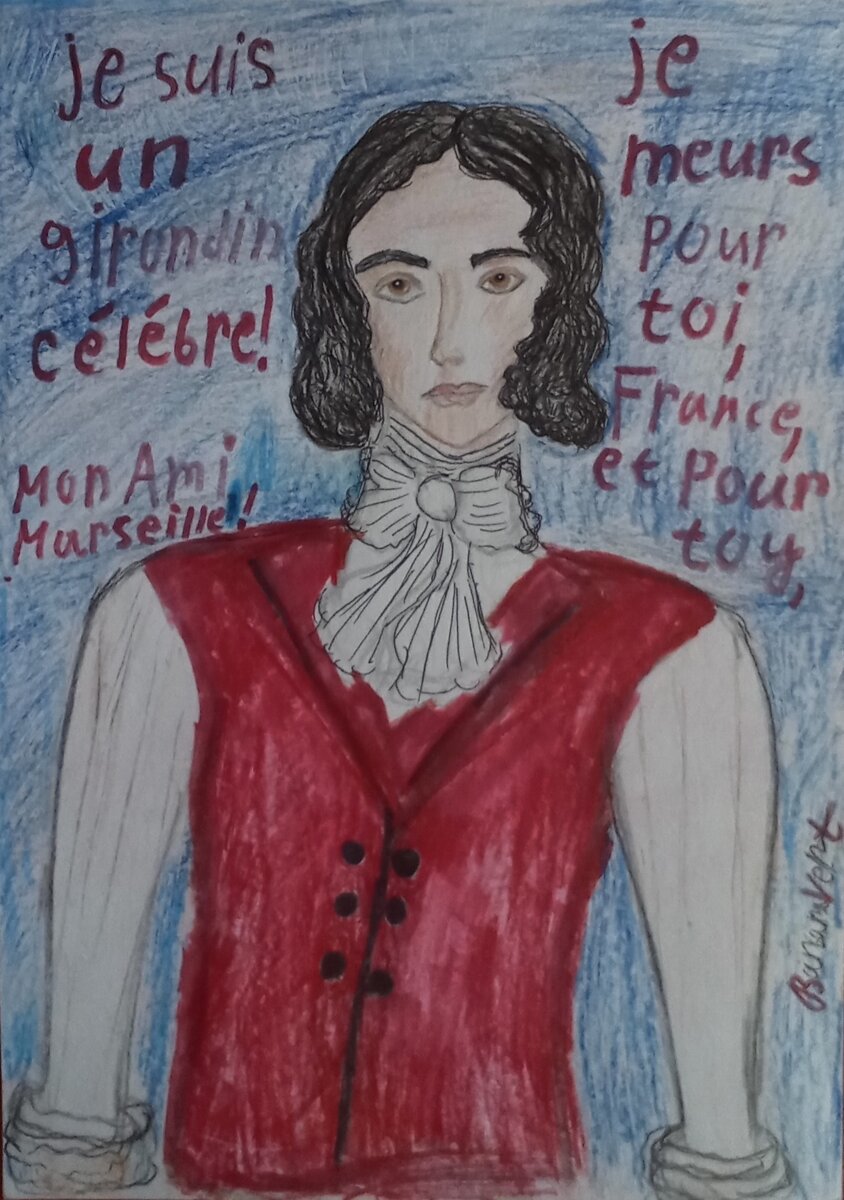 je suis
un
girondin
célébre!
je
meurs
pour
toi,
France,
et pour
toy,
Mon Ami
Marseille!